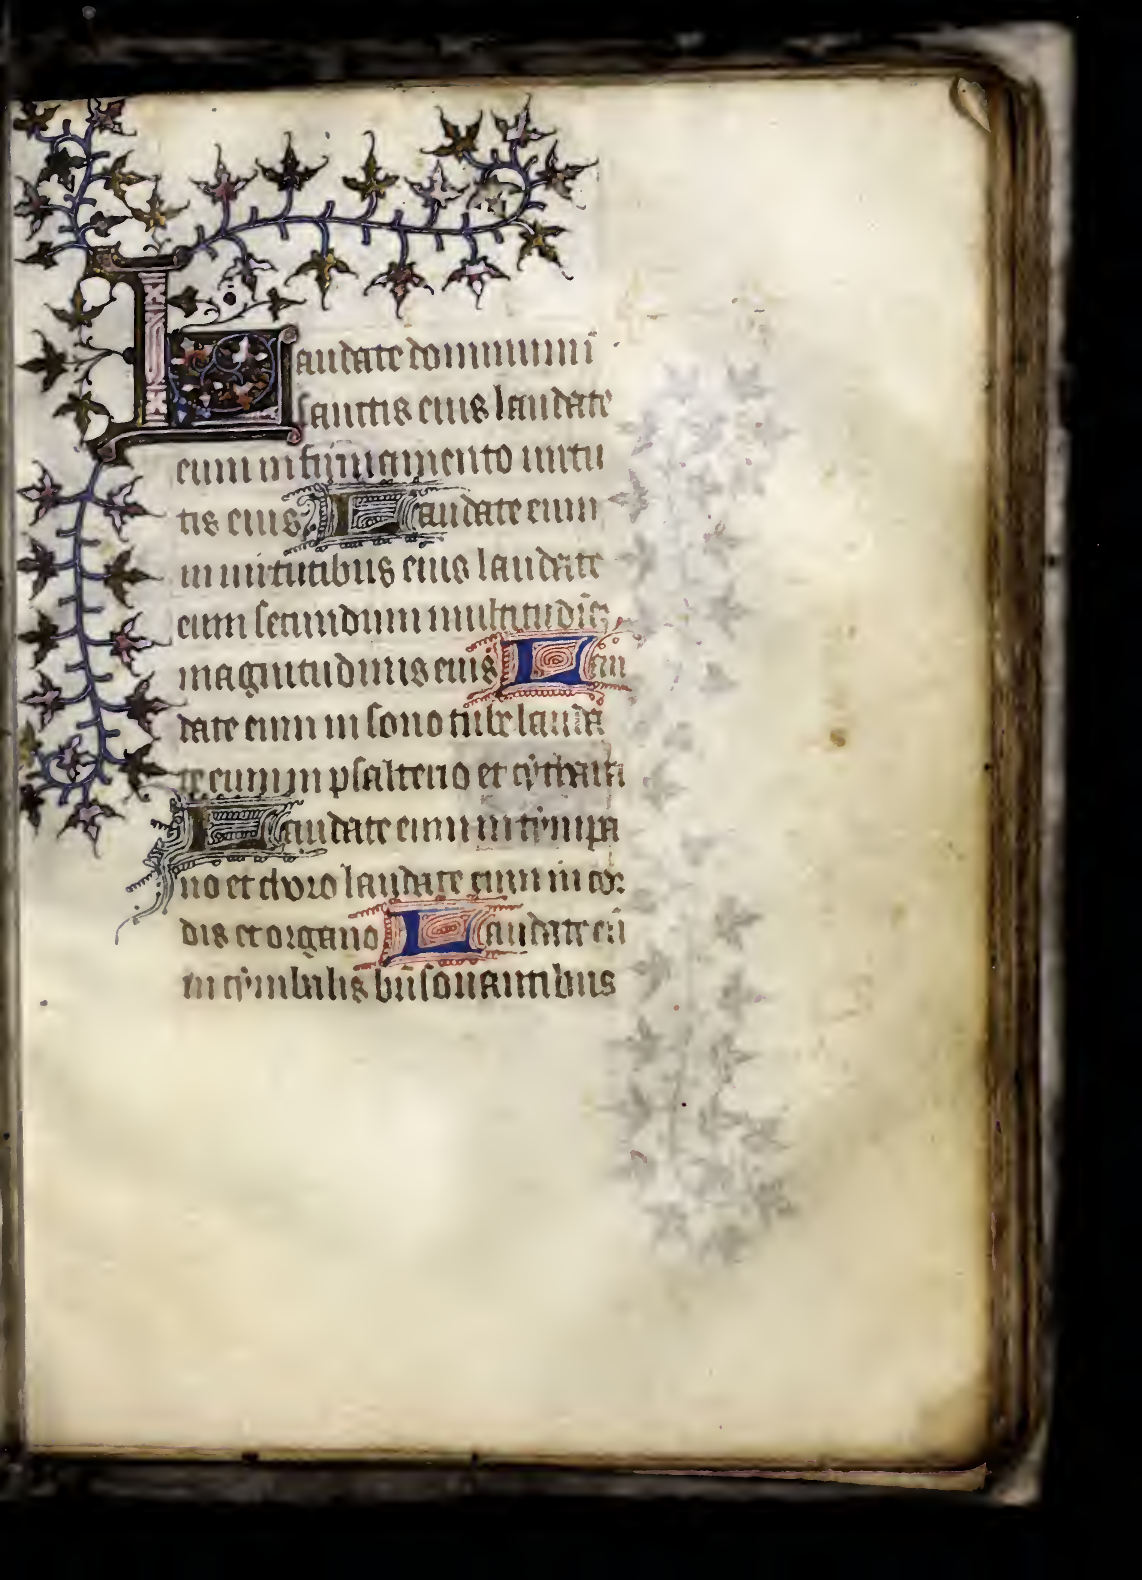 Laudate dominum ī
sanctis eius laudate
eum in firmamento uirtu
tis eius Laudate eum
in uirtutibus eius laudate
eum secundum multitudīeȝ
magnitudinis eius Lau
date eum in sono tube lauda
te eum in psalterio et cythara
Laudate eum in tympa
no et choro laudate eum in cor
dis et organo Laudate eū
in cymbalis bn̄sonantibus